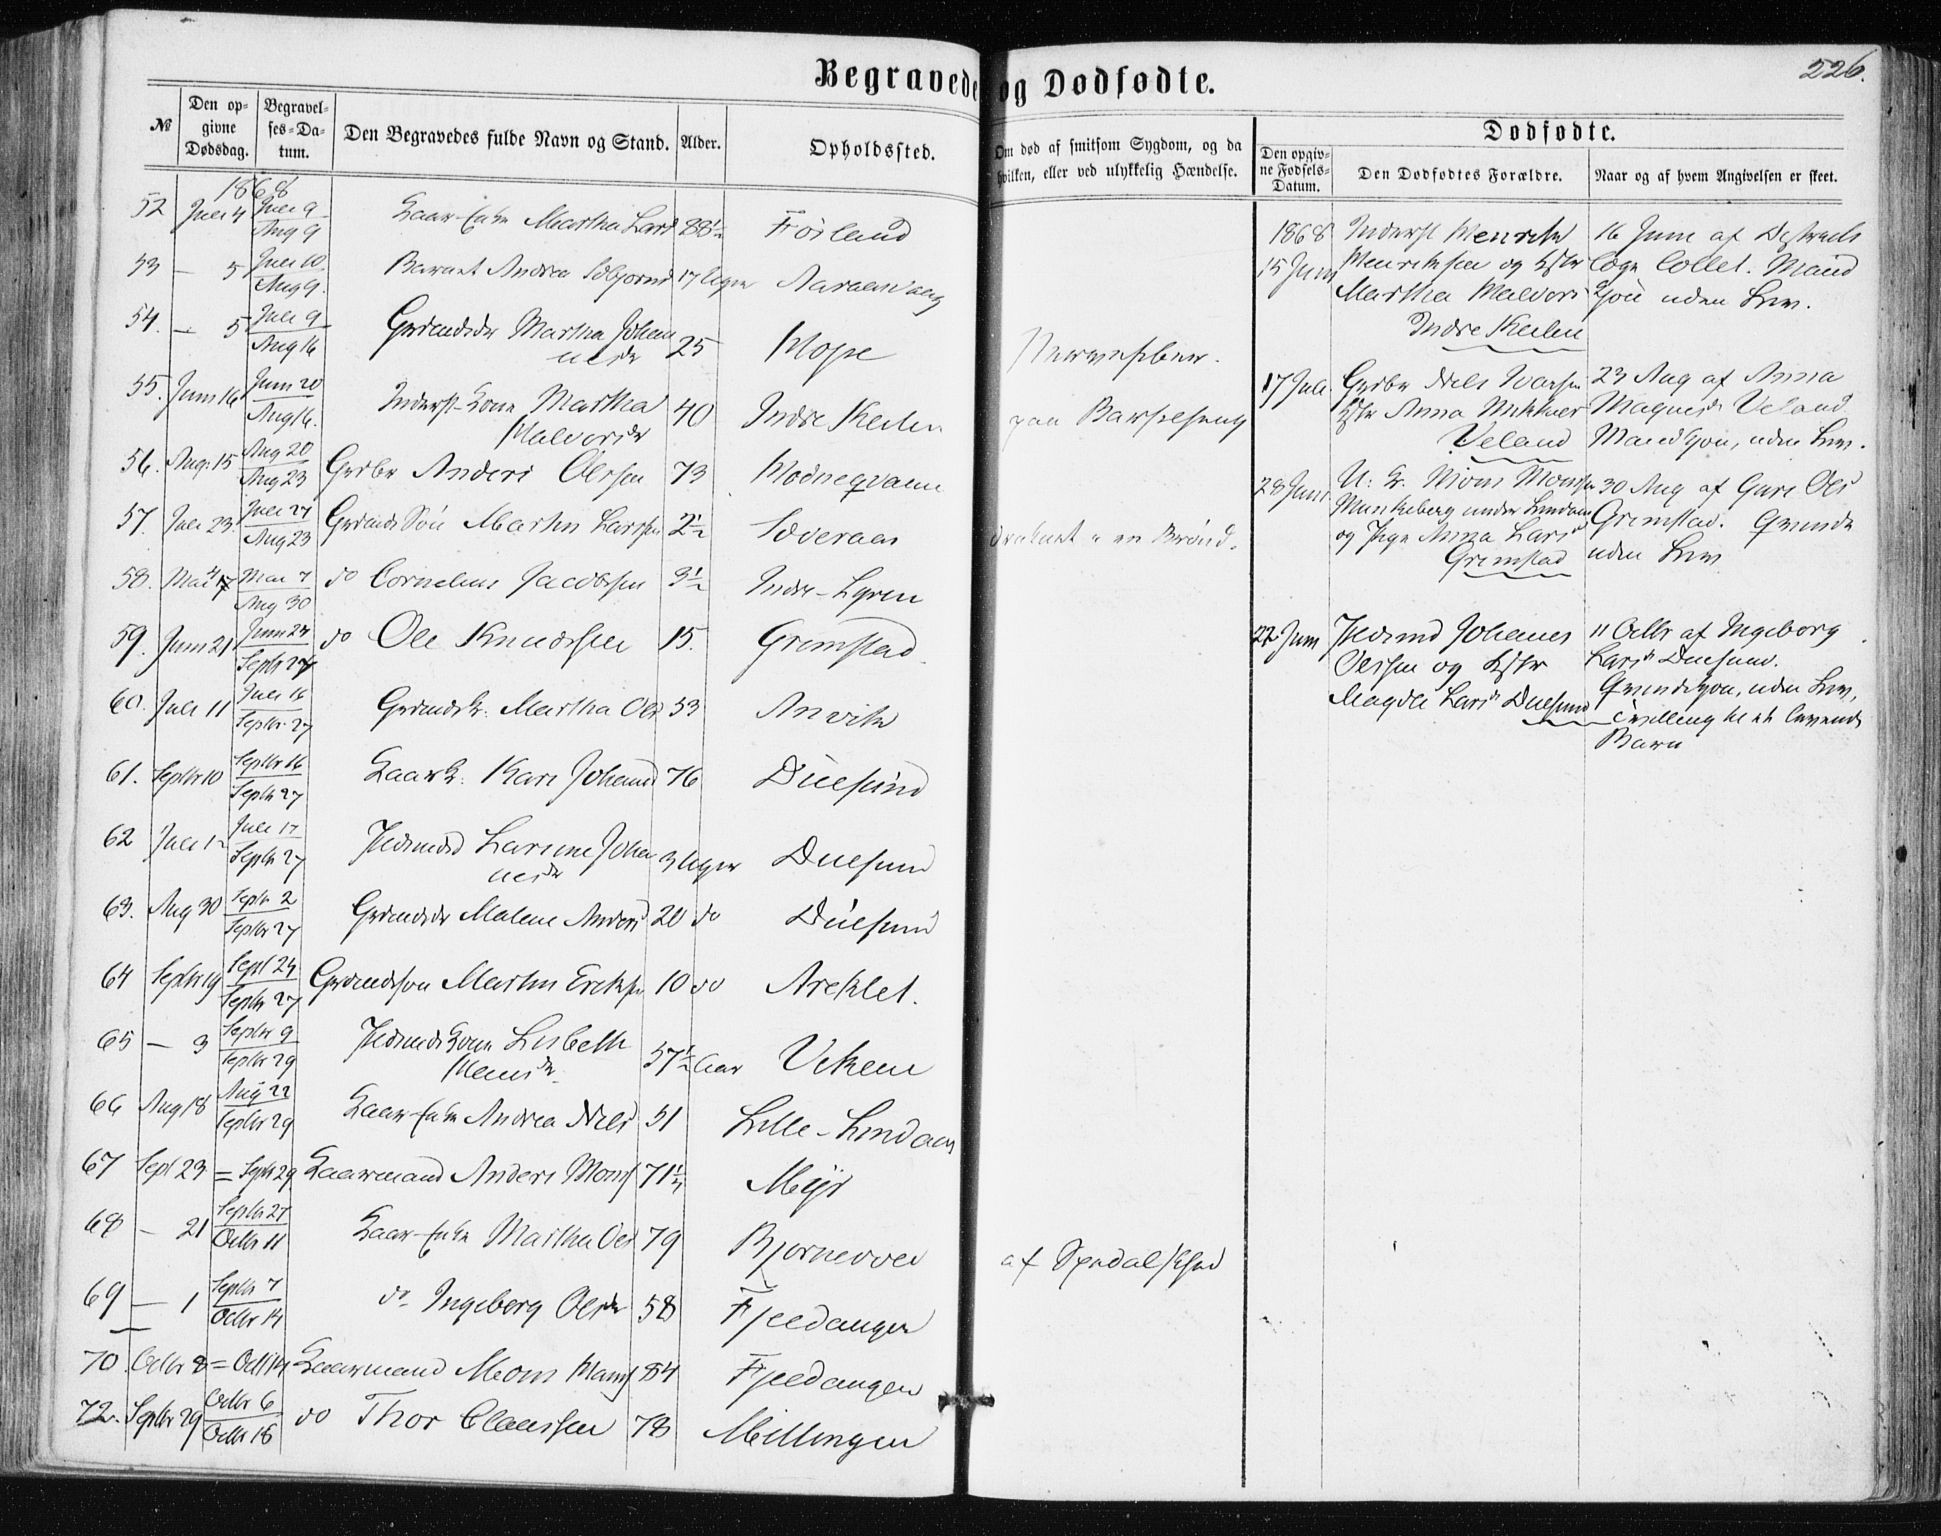 Begravede og Dødfødte.
226.
№
Den opgivne Dødsdag.
Begravelses-Datum.
Den Begravedes fulde Navn og Stand.
Alder.
Opholdssted.
Om død af smitsom Sygdom, og da hvilken, eller ved ulykkelig Hændelse.
Dødfødte.
Den opgivne Fødsels-Datum.
Den Dødfødtes Forældre.
Naar og af hvem Angivelsen er skeet.
1868
52 Juli 4 Juli 9 Aug 9 Kaar-Enke Martha Lars 88½ Førland
53 — 5 Juli 10 Aug 9. Barnet Andrea 17 Uger
54. — 5 Juli 9 Aug 16 Martha Johannesdr 25 Hope
55. Juni 16 Juni 20 Aug 16. Inderst-Kone Martha Halvorsdr 40 Indre Keilen paa Barselseng
56. Aug. 15 Aug 20 Aug 23 Grdbr Anders Olssen 73
57. Juli 23. Juli 27 Aug 23 Søn Martin Larssen 2½ druknet i en Brønd.
58. Mai Mai 7 Aug 30 do Cornelius Jacobsen 3½ Indre-
59. Juni 21 Juni 24 Septbr 27 do Ole Knudssen 15. Grimstad
60. Juli 11 Juli 16 Septbr 27 Martha Ols 53 Anvik
61. Septbr 10 Septbr 16 Septbr 27 Kaark. Kari Johannes 76 Duesund
62 Juli 12 Juli 17 Septbr 27 Larsine Johannesdr 3 Uger Duesund
63. Aug 30 Septbr 2 Septbr 27 Malene Anders 20 do Duesund
64 Septbr 19 Septbr 24 Septbr 27 Grdmdssøn Martin Eriks 10 do Areklet.
65 — 3 Septbr 9 Septbr 29 Kone Lisbeth Hansdr 57½ Aar Viken
66 Aug 18 Aug 22 Septbr 29 Kaar-Enke Andrea Niels 51 Lille-Lindaas
67 Sept 23 = Septbr 29 Kaarmand Anders Mons 71½ Myr
68 — 21 Septbr 27 Octbr 11 Kaar-Enke Martha Ols 79 af Spedalskhed
69 — 1 Septbr 7 Octbr 14 do Ingeborg Olsdr 58 Fjeldanger
70. Octbr 8 = Octbr 14 Kaarmand Mons Hans 84 Fjeldanger
72. Septbr 29 Octbr 6 Octbr 18 do Thor Claussen 78 Millingen
1868
15 Juni
Inderst Henrik
Henriksen og Hstr
Martha Halvors
Indre Keilen
16 Juni af Distrikts
læge Collet. Mand
Kjøn uden Lev.
17 Juli
Grdbr Niels Ivarsen
Hstr Anna
Veland
23 Aug af Anna
Magnesdr Veland
Mand Kjøn, uden Lev.
28 Juni
U. K. Mons Monsen
Munkeberg under Lindaas
og Pige Anna Lars
Grimstad
30 Aug af Guri Ols
Grimstad. Qvinde
uden Lev
22 Juni
Johannes
Olssen og Hstr
Magda Larsdr Duesund
11 Octbr af Ingeborg
Larsdr Duesund.
Qvindekjøn, uden Lev,
Tvilling til et levende
Barn